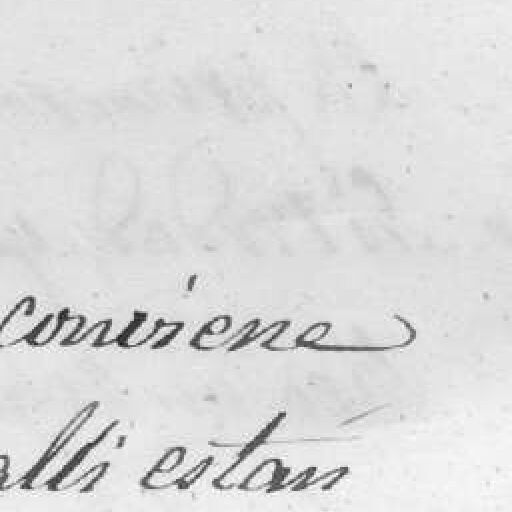 conviene
alli están